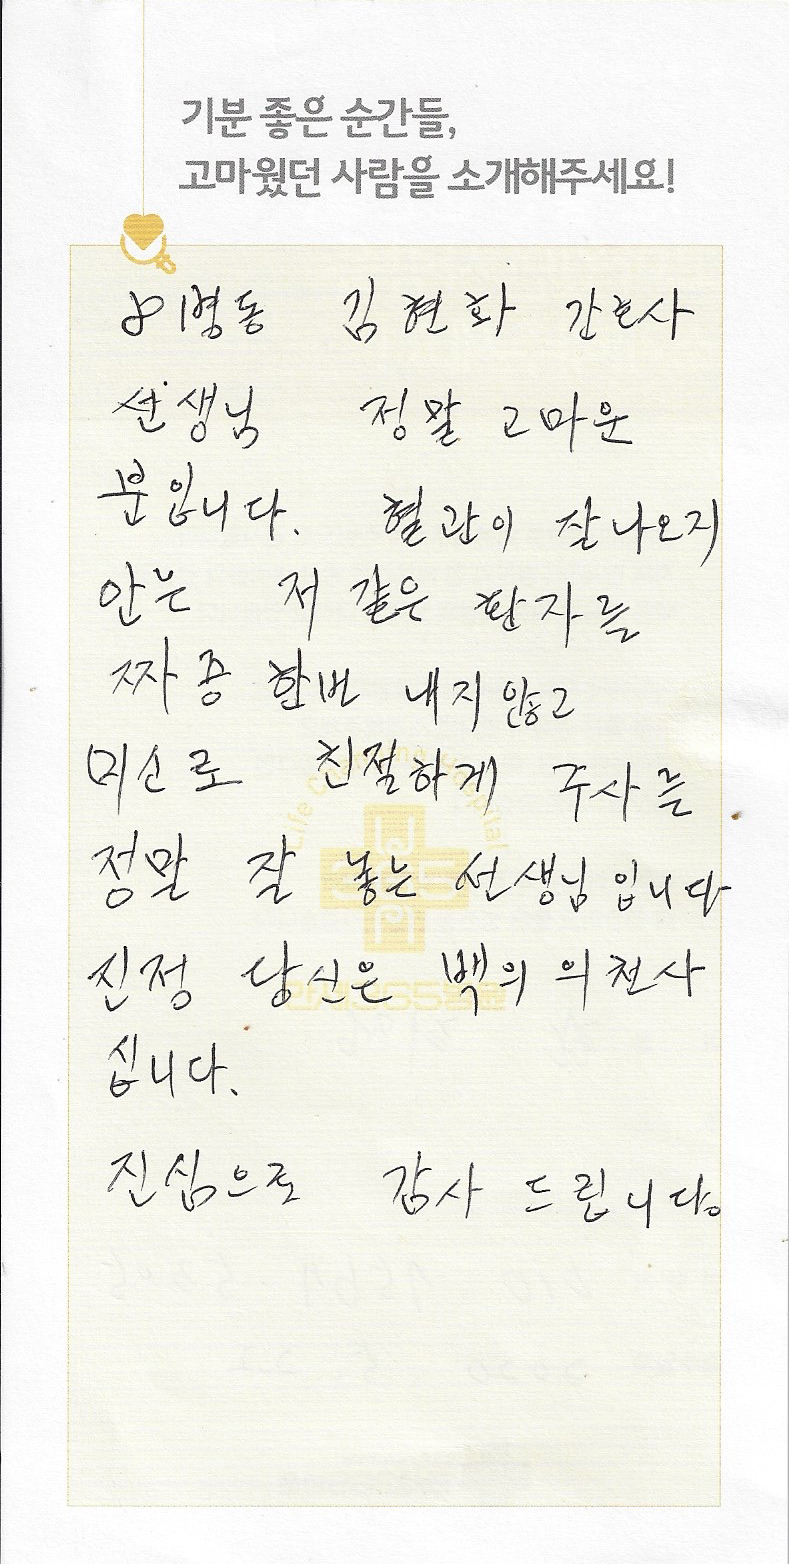 기분 좋은 순간들,
고마웠던 사람을 소개해주세요!
81병동 김현화 간호사
선생님 정말 고마운
분입니다. 혈관이 잘나오지
안는 저 같은 환자를
짜증 한번 내지 않고
미소로 친절하게 주사를
정말 잘 놓는 선생님 입니다
진정 당신은 백의 의 천사
십니다.
진심으로 감사 드립니다.
Life Changing Hospital
365
안생365병원